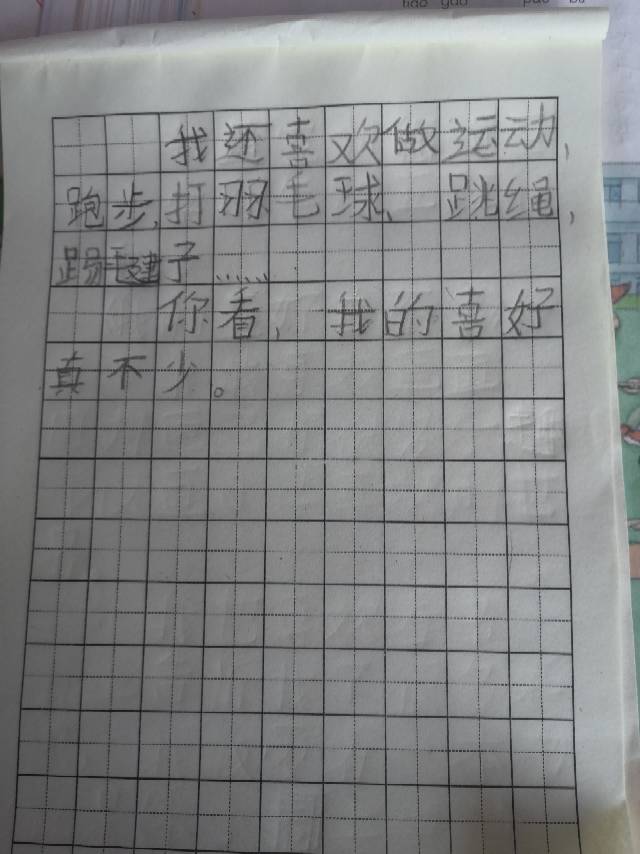 我还喜欢做运动，
跑步、打羽毛球、跳绳，
踢毽子……
你看，我的喜好
真不少。